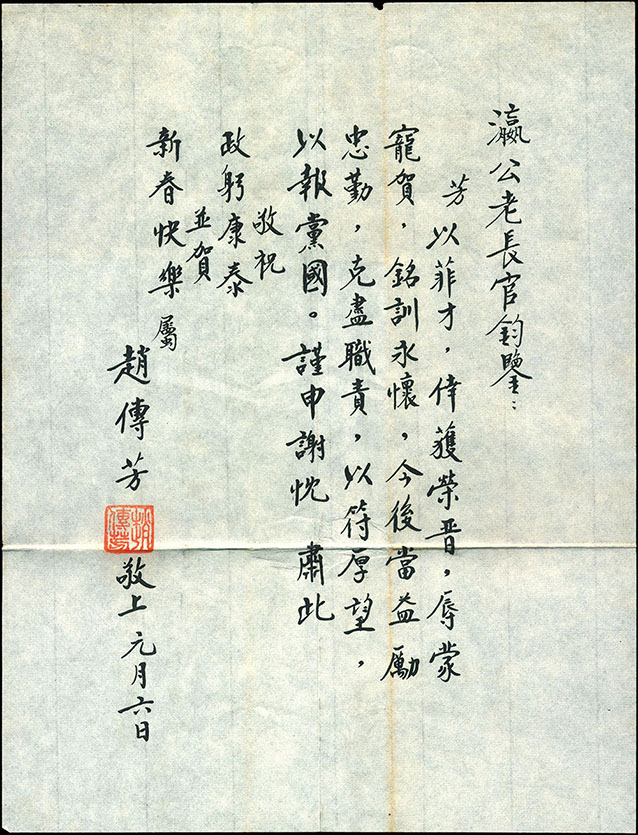 瀛公老長官鈞鑒：
芳以菲才，倖獲榮晋，辱蒙
寵賀，銘訓永懷，今後當益勵
忠勤，克盡職責，以符厚望，
以報黨國。謹申謝忱 肅此
敬祝
政躬康泰
並賀
新春快樂
屬
趙傳芳 敬上 元月六日
趙傳芳